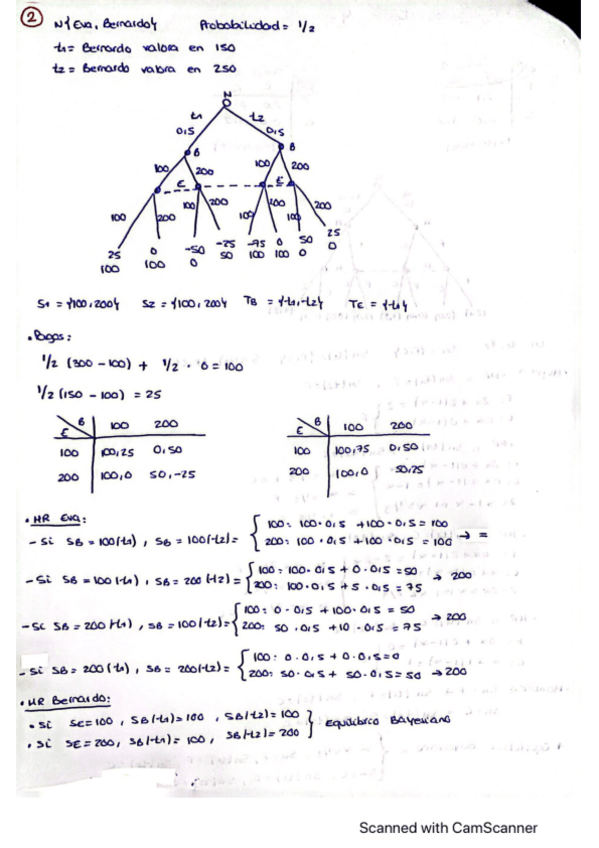 ② N{Eva, Bernardo} Probabilidad = 1/2
t1 = Bernardo valora en 150
t2 = Bernardo valora en 250
N
t1 t2
0,5 0,5
B B
100 200 100 200
E E
100 200 100 200 100 200 100 200
25 0 -50 -25 -75 0 50 25
100 100 0 50 100 100 0 0
S1 = {100,200} S2 = {100,200} TB = {t1,t2} TE = {t1}
• Pagos:
1/2 (300 - 100) + 1/2 · 0 = 100
1/2 (150 - 100) = 25
B 100 200 B 100 200
E E
100 100,25 0,50 100 100,75 0,50
200 100,0 50,-25 200 100,0 50,25
• MR Eva:
- Si SB = 100(t1), SB = 100(t2) = { 100: 100·0,5 + 100·0,5 = 100
200: 100·0,5 + 100·0,5 = 100 → =
- Si SB = 100(t1), SB = 200(t2) = { 100: 100·0,5 + 0·0,5 = 50
200: 100·0,5 + 5·0,5 = 75 → 200
- Si SB = 200(t1), SB = 100(t2) = { 100: 0·0,5 + 100·0,5 = 50
200: 50·0,5 + 10·0,5 = 75 → 200
- Si SB = 200(t1), SB = 200(t2) = { 100: 0·0,5 + 0·0,5 = 0
200: 50·0,5 + 50·0,5 = 50 → 200
• MR Bernardo:
• Si SE = 100, SB(t1) = 100, SB(t2) = 100 } Equilibrio Bayesiano
• Si SE = 200, SB(t1) = 100, SB(t2) = 200
Scanned with CamScanner